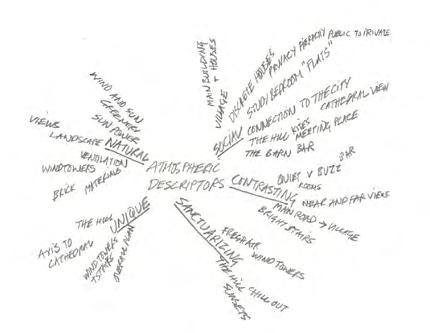 ATMOSPHERIC
DESCRIPTORS
NATURAL
WIND AND SUN
GREENERY
SUN POWER
VIEWS
LANDSCAPE
VENTILATION
WINDTOWERS
BRICK MATERIALS
SOCIAL
MAIN BUILDING
+ HOUSES
VILLAGE
DISCRETE HOUSES
PRIVACY
PUBLIC TO PRIVATE
STUDY BEDROOM "FLATS"
CONNECTION TO THE CITY
CATHEDRAL VIEW
THE HILL KITES MEETING PLACE
THE BARN BAR
CONTRASTING
QUIET V BUZZ
ROOMS
BAR
NEAR AND FAR VIEWS
MAIN ROAD → VILLAGE
BRIGHT STAIRS
SANCTUARIZING
FRESH AIR WINDTOWERS
THE HILL CHILL OUT
SUNSETS
UNIQUE
THE HILL
AXIS TO
CATHEDRAL
WINDTOWERS
+ STAIRS
PLAN